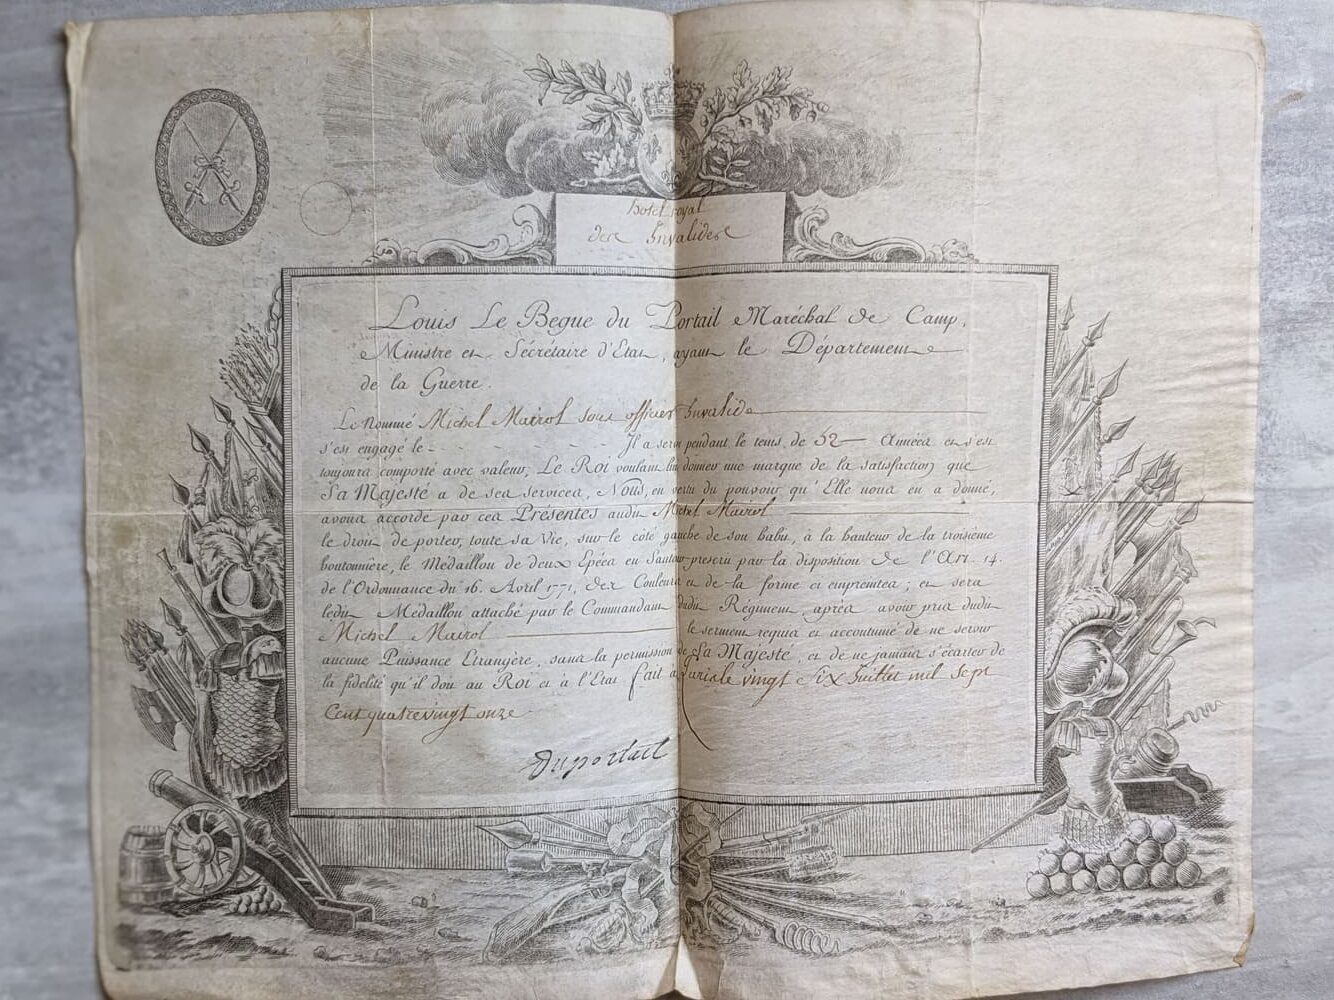 hotel royal
des Invalides
Louis Le Begue du Portail Maréchal de Camp,
Ministre et Sécrétaire d'Etat, ayant le Département
de la Guerre.
Le Nommé Michel Mairol sous officier Invalide
s'est engagé le - - - - - Il a servi pendant le tems de 52 Années et s'est
toujours comporté avec valeur, Le Roi voulant lui donner une marque de la satisfaction que
Sa Majesté a de ses services, Nous, en vertu du pouvoir qu'Elle nous en a donné,
avons accordé par ces Présentes audit Michel Mairol
le droit de porter, toute sa Vie, sur le côté gauche de son habit, à la hauteur de la troisième
boutonnière, le Medaillon de deux Epées en Sautoir prescrit par la disposition de l'Art. 14.
de l'Ordonnance du 16. Avril 1771, des Couleurs et de la forme ci empreintes; et sera
ledit Medaillon attaché par le Commandant dudit Régiment, après avoir pris dudit
Michel Mairol le serment requis et accoutumé de ne servir
aucune Puissance Etrangère, sans la permission de Sa Majesté, et de ne jamais s'écarter de
la fidelité qu'il doit au Roi et à l'Etat fait a Paris le vingt Six Juillet mil Sept
Cent quatrevingt onze
Duportail